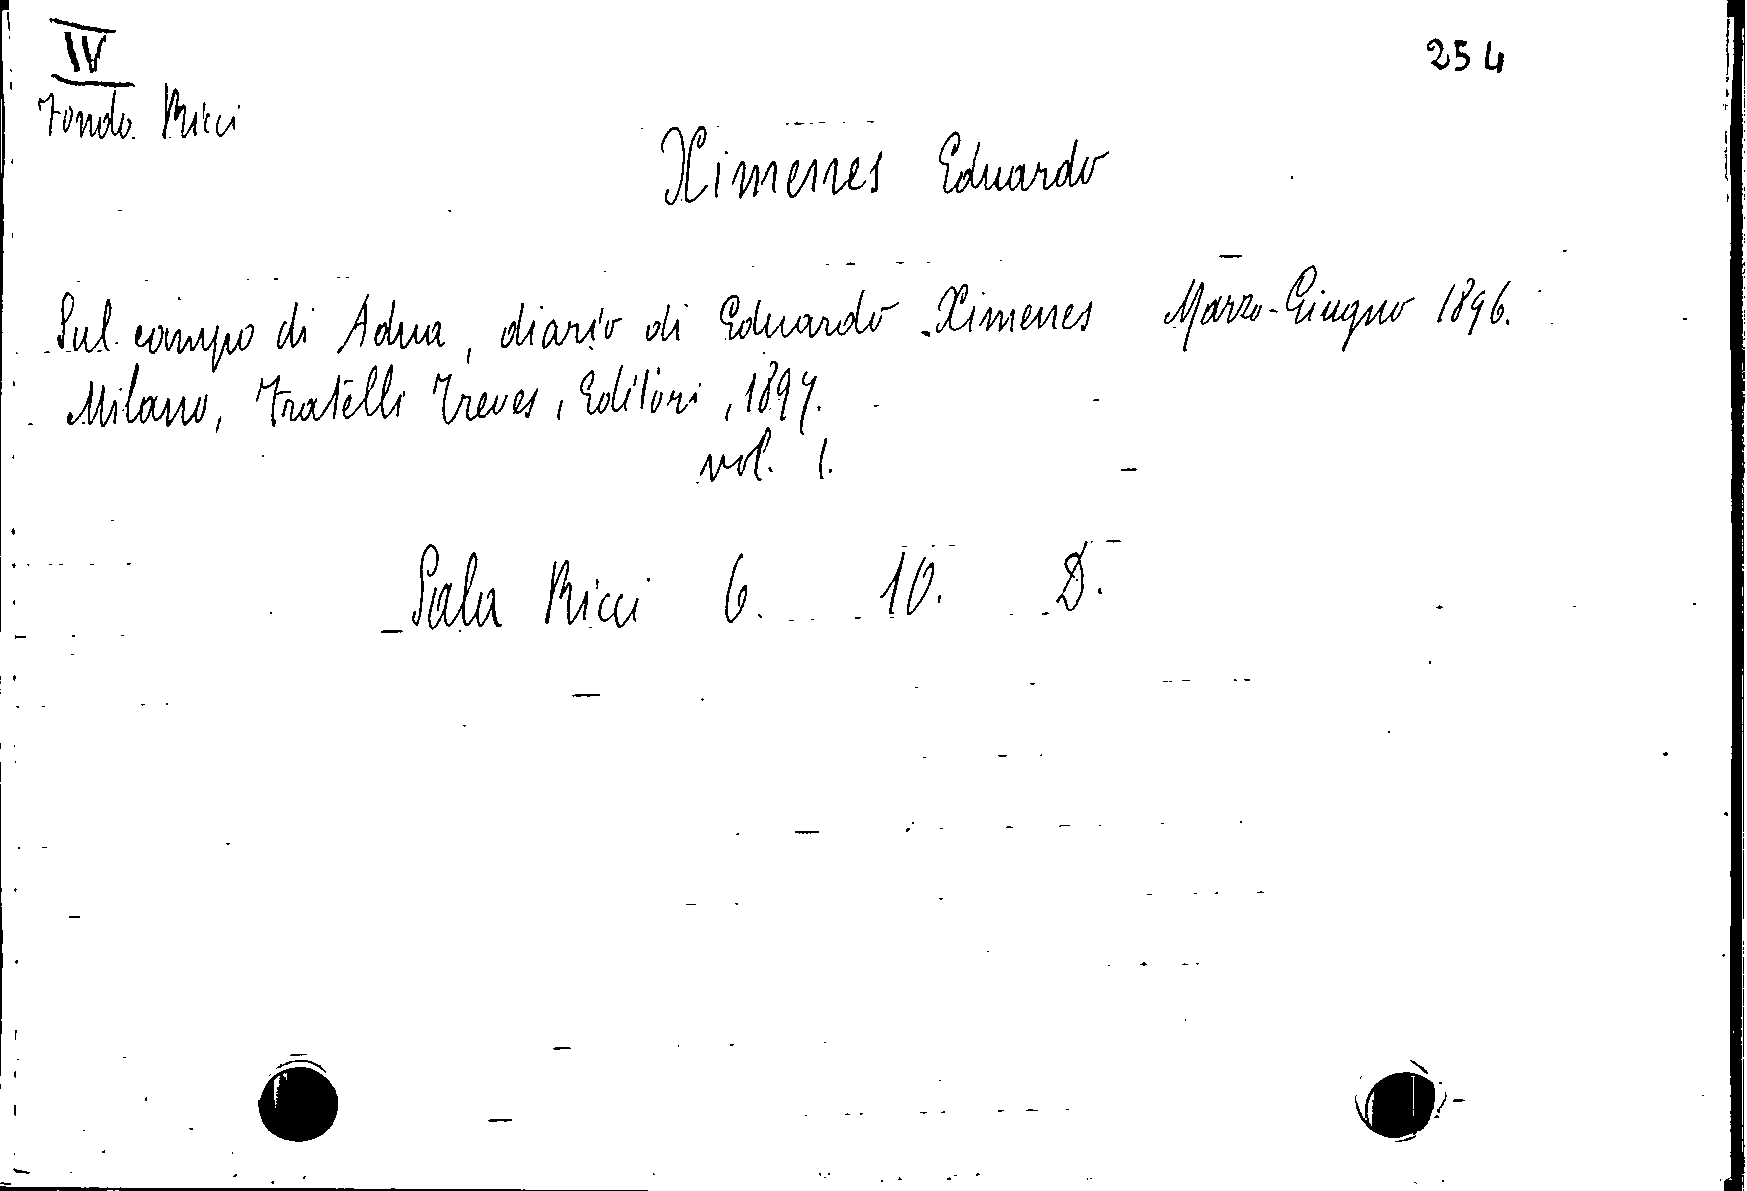 IV
254
Fondo Ricci
Ximenes Eduardo
Sul campo di Adua, diario di Eduardo Ximenes Marzo-Giugno 1896.
Milano, Fratelli Treves, Editori, 1897.
vol. 1.
Sala Ricci 6. 10. D.